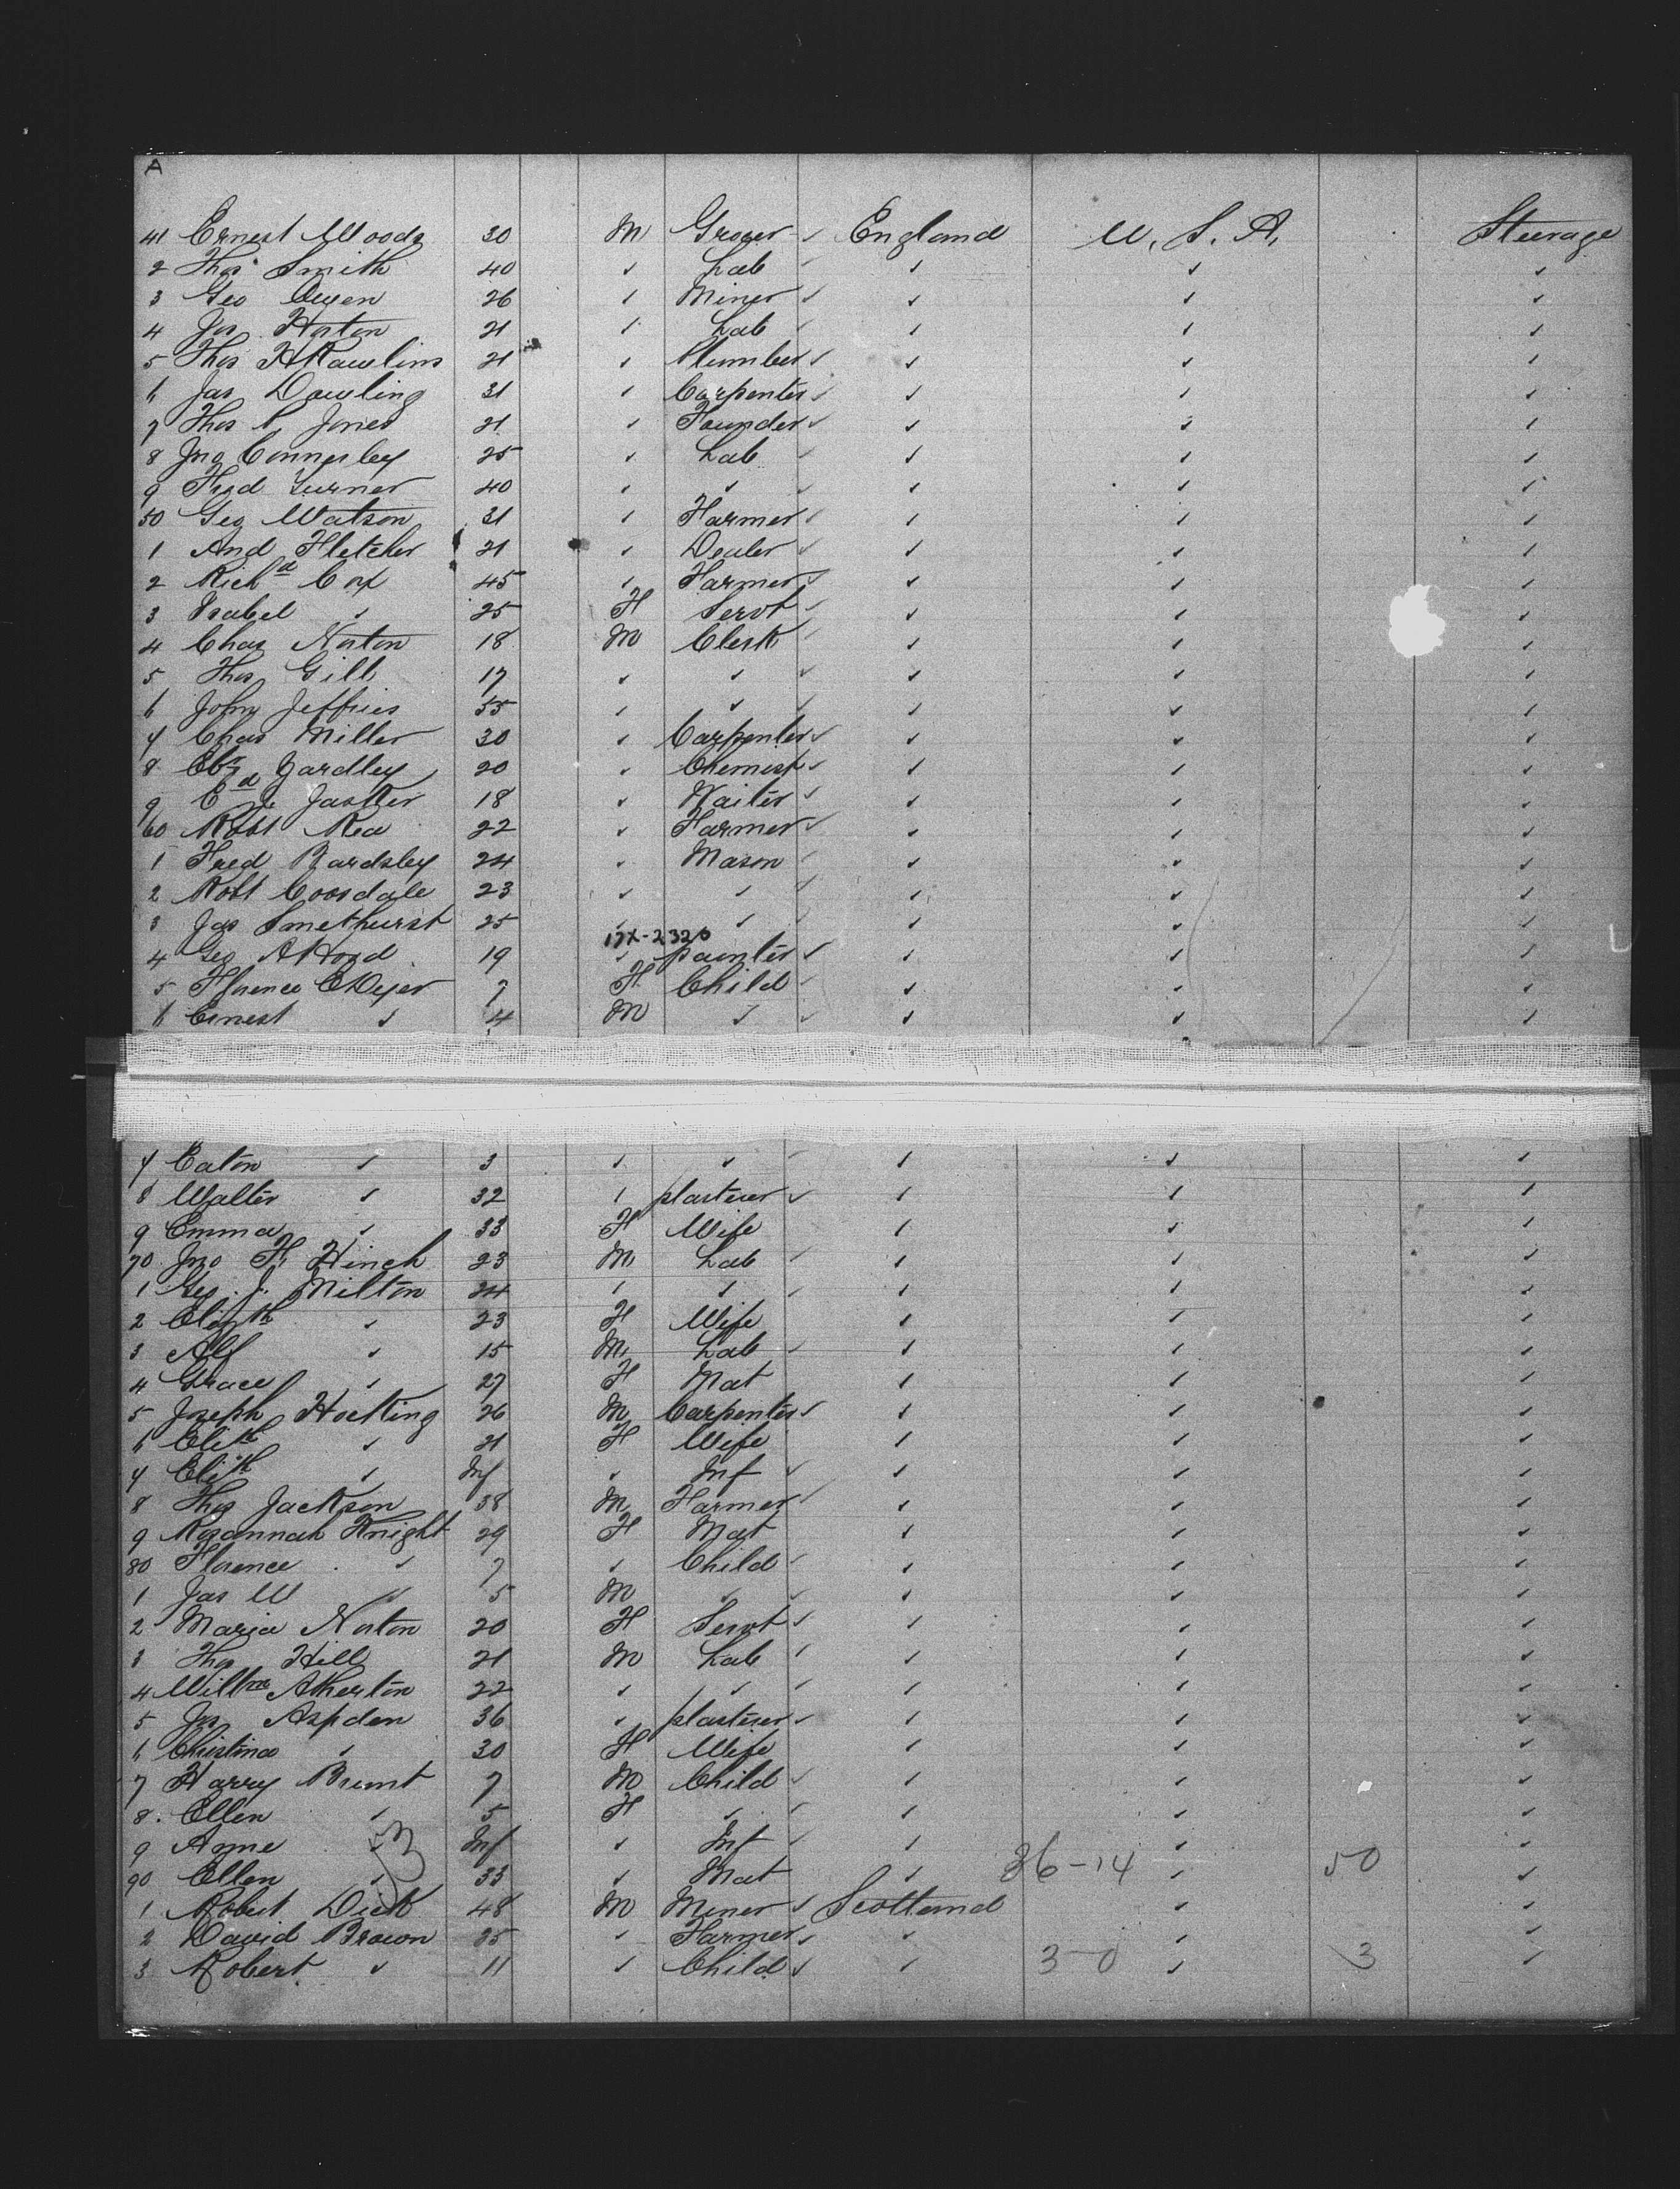 A
41 Ernest Woods 30 M Grocer ✓ England U. S. A. Steerage
2 Thos Smith 40 ✓ Lab ✓ ✓ ✓ ✓
3 Geo Owen 26 ✓ Miner ✓ ✓ ✓ ✓
4 Jos Horton 21 ✓ Lab ✓ ✓ ✓ ✓
5 Thos H Rawlins 21 ✓ Plumber ✓ ✓ ✓ ✓
6 Jas Dowling 31 ✓ Carpenter ✓ ✓ ✓ ✓
7 Thos Jones 21 ✓ Founder ✓ ✓ ✓ ✓
8 Jno Connerley 25 ✓ Lab ✓ ✓ ✓ ✓
9 Fred Turner 40 ✓ ✓ ✓ ✓ ✓ ✓
50 Geo Watson 31 ✓ Farmer ✓ ✓ ✓ ✓
1 And Fletcher 21 ✓ Dealer ✓ ✓ ✓ ✓
2 Richd Cox 45 ✓ Farmer ✓ ✓ ✓ ✓
3 Isabel ✓ 25 F Servt ✓ ✓ ✓ ✓
4 Chas Norton 18 M Clerk ✓ ✓ ✓ ✓
5 Thos Gill 17 ✓ ✓ ✓ ✓ ✓ ✓
6 John Jeffries 35 ✓ ✓ ✓ ✓ ✓ ✓
7 Chas Miller 30 ✓ Carpenter ✓ ✓ ✓ ✓
8 Yardley 20 ✓ Chemist ✓ ✓ ✓ ✓
9 Ed 18 ✓ Waiter ✓ ✓ ✓ ✓
60 Robt Rea 22 ✓ Farmer ✓ ✓ ✓ ✓
1 Fred Bardsley 24 ✓ Mason ✓ ✓ ✓ ✓
2 Robt Coosdale 23 ✓ ✓ ✓ ✓ ✓ ✓
3 Jas Smethurst 25 ✓ ✓ ✓ ✓ ✓ ✓
17X-2320
4 Geo 19 ✓ painter ✓ ✓ ✓ ✓
5 Florence E Dyer 7 F Child ✓ ✓ ✓ ✓
6 Ernest ✓ 4 M ✓ ✓ ✓ ✓ ✓
7 Eaton ✓ 3 ✓ ✓ ✓ ✓ ✓ ✓
8 Walter ✓ 32 ✓ plasterer ✓ ✓ ✓ ✓
9 Emma ✓ 33 F Wife ✓ ✓ ✓
70 Jno F Hinch 23 M Lab ✓ ✓ ✓ ✓
1 Geo J. Milton 24 ✓ ✓ ✓ ✓ ✓ ✓
2 Elizth ✓ 23 F Wife ✓ ✓ ✓
3 Alf ✓ 15 M Lab ✓ ✓ ✓ ✓
4 Grace ✓ 27 F Mat ✓ ✓ ✓
5 Joseph Hocking 26 M Carpenter ✓ ✓ ✓ ✓
6 Elith ✓ 21 F Wife ✓ ✓ ✓
7 Elith ✓ Inf ✓ Inf ✓ ✓ ✓ ✓
8 Thos Jackson 38 M Farmer ✓ ✓ ✓ ✓
9 Rosannah Knight 29 F Mat ✓ ✓ ✓
80 Florence ✓ 7 ✓ Child ✓ ✓ ✓ ✓
1 Jas W ✓ 5 M ✓ ✓ ✓ ✓ ✓
2 Maria Norton 20 F Servt ✓ ✓ ✓ ✓
3 Thos Hill 21 M Lab ✓ ✓ ✓ ✓
4 Willm Atherton 22 ✓ ✓ ✓ ✓ ✓ ✓
5 Jas Aspden 36 ✓ plasterer ✓ ✓ ✓ ✓
6 Christina ✓ 30 F Wife ✓ ✓ ✓
7 Harry Brunt 7 M Child ✓ ✓ ✓ ✓
8 Ellen ✓ 5 F ✓ ✓ ✓ ✓ ✓
9 Anne ✓ Inf ✓ Inf ✓ ✓ ✓ ✓
90 Ellen ✓ 33 ✓ Mat ✓ 36-14 ✓ 50 ✓
53
1 Robert Dick 48 M Miner ✓ Scotland ✓ ✓
2 David Brown 25 ✓ Farmer ✓ ✓ ✓ ✓
3 Robert ✓ 11 ✓ Child ✓ ✓ 3-0 ✓ 3 ✓